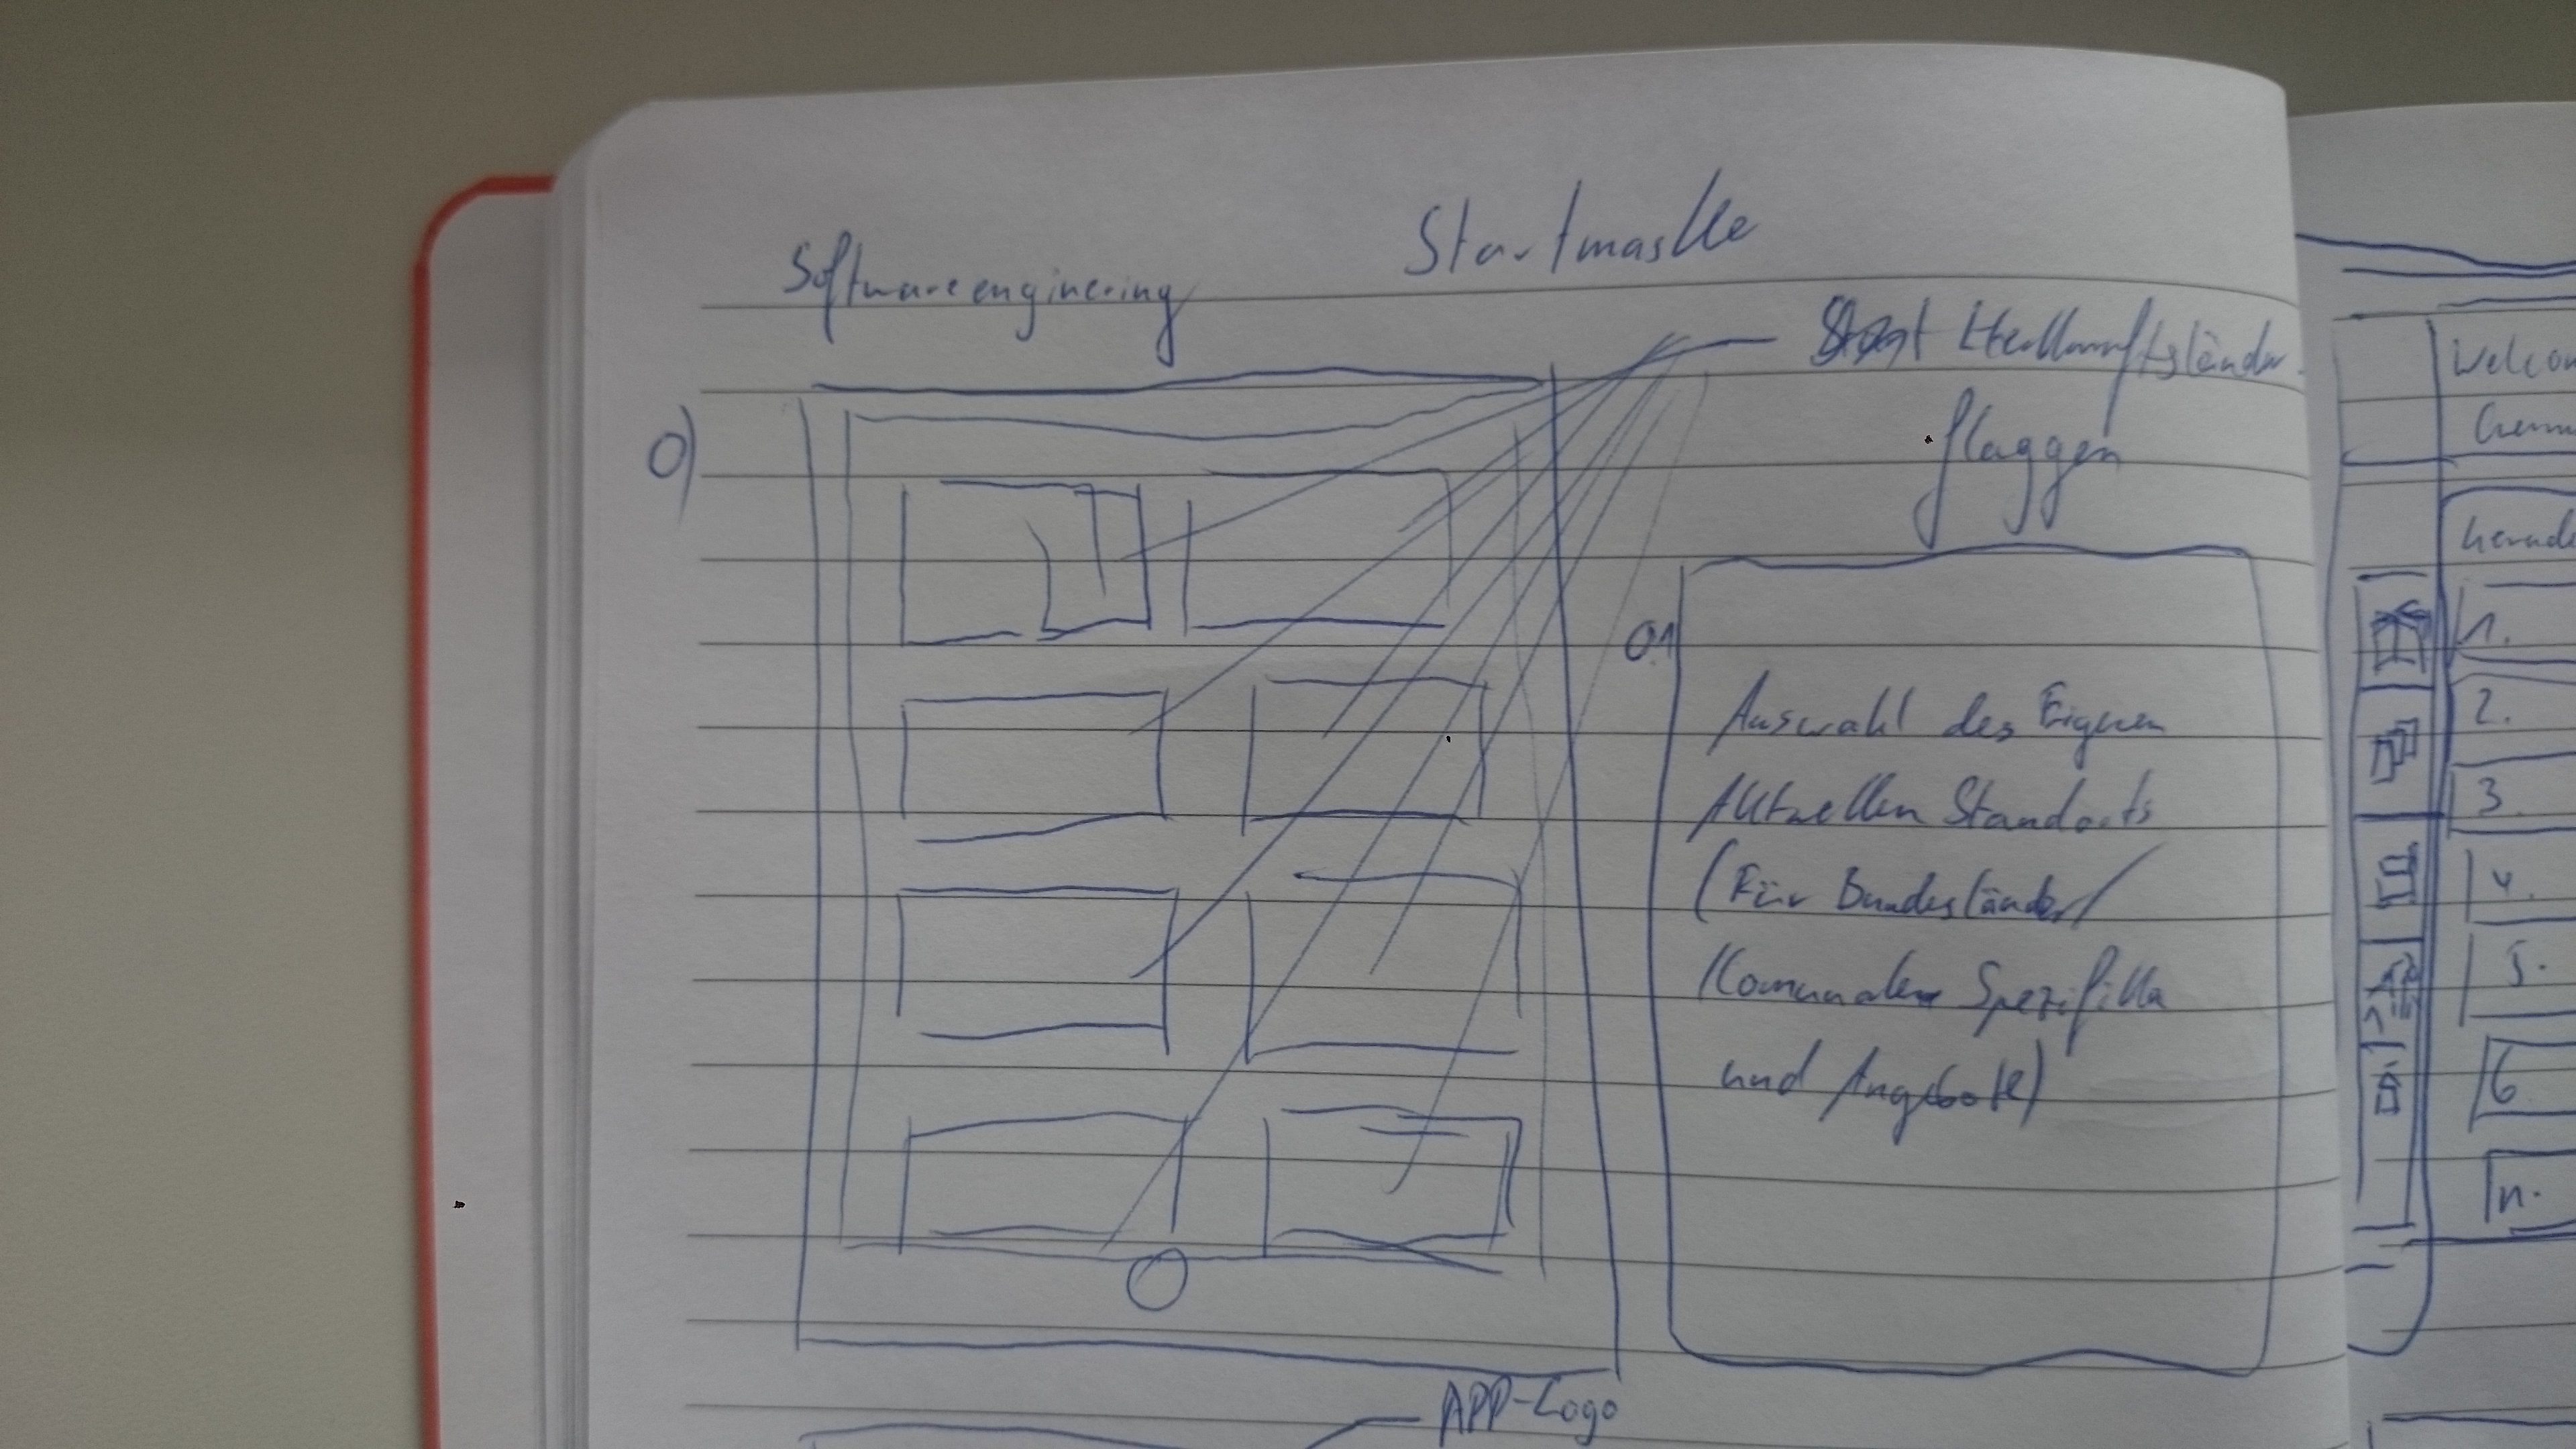 Softwareengineering
Startmaske
Herkunftsländer
flaggen
0)
0.1
Auswahl des Eigenen
Aktuellen Standorts
(Für Bundesländer/
Komunalen Spezifika
und Angebote)
APP-Logo
1.
2.
3.
4.
5.
6
n.